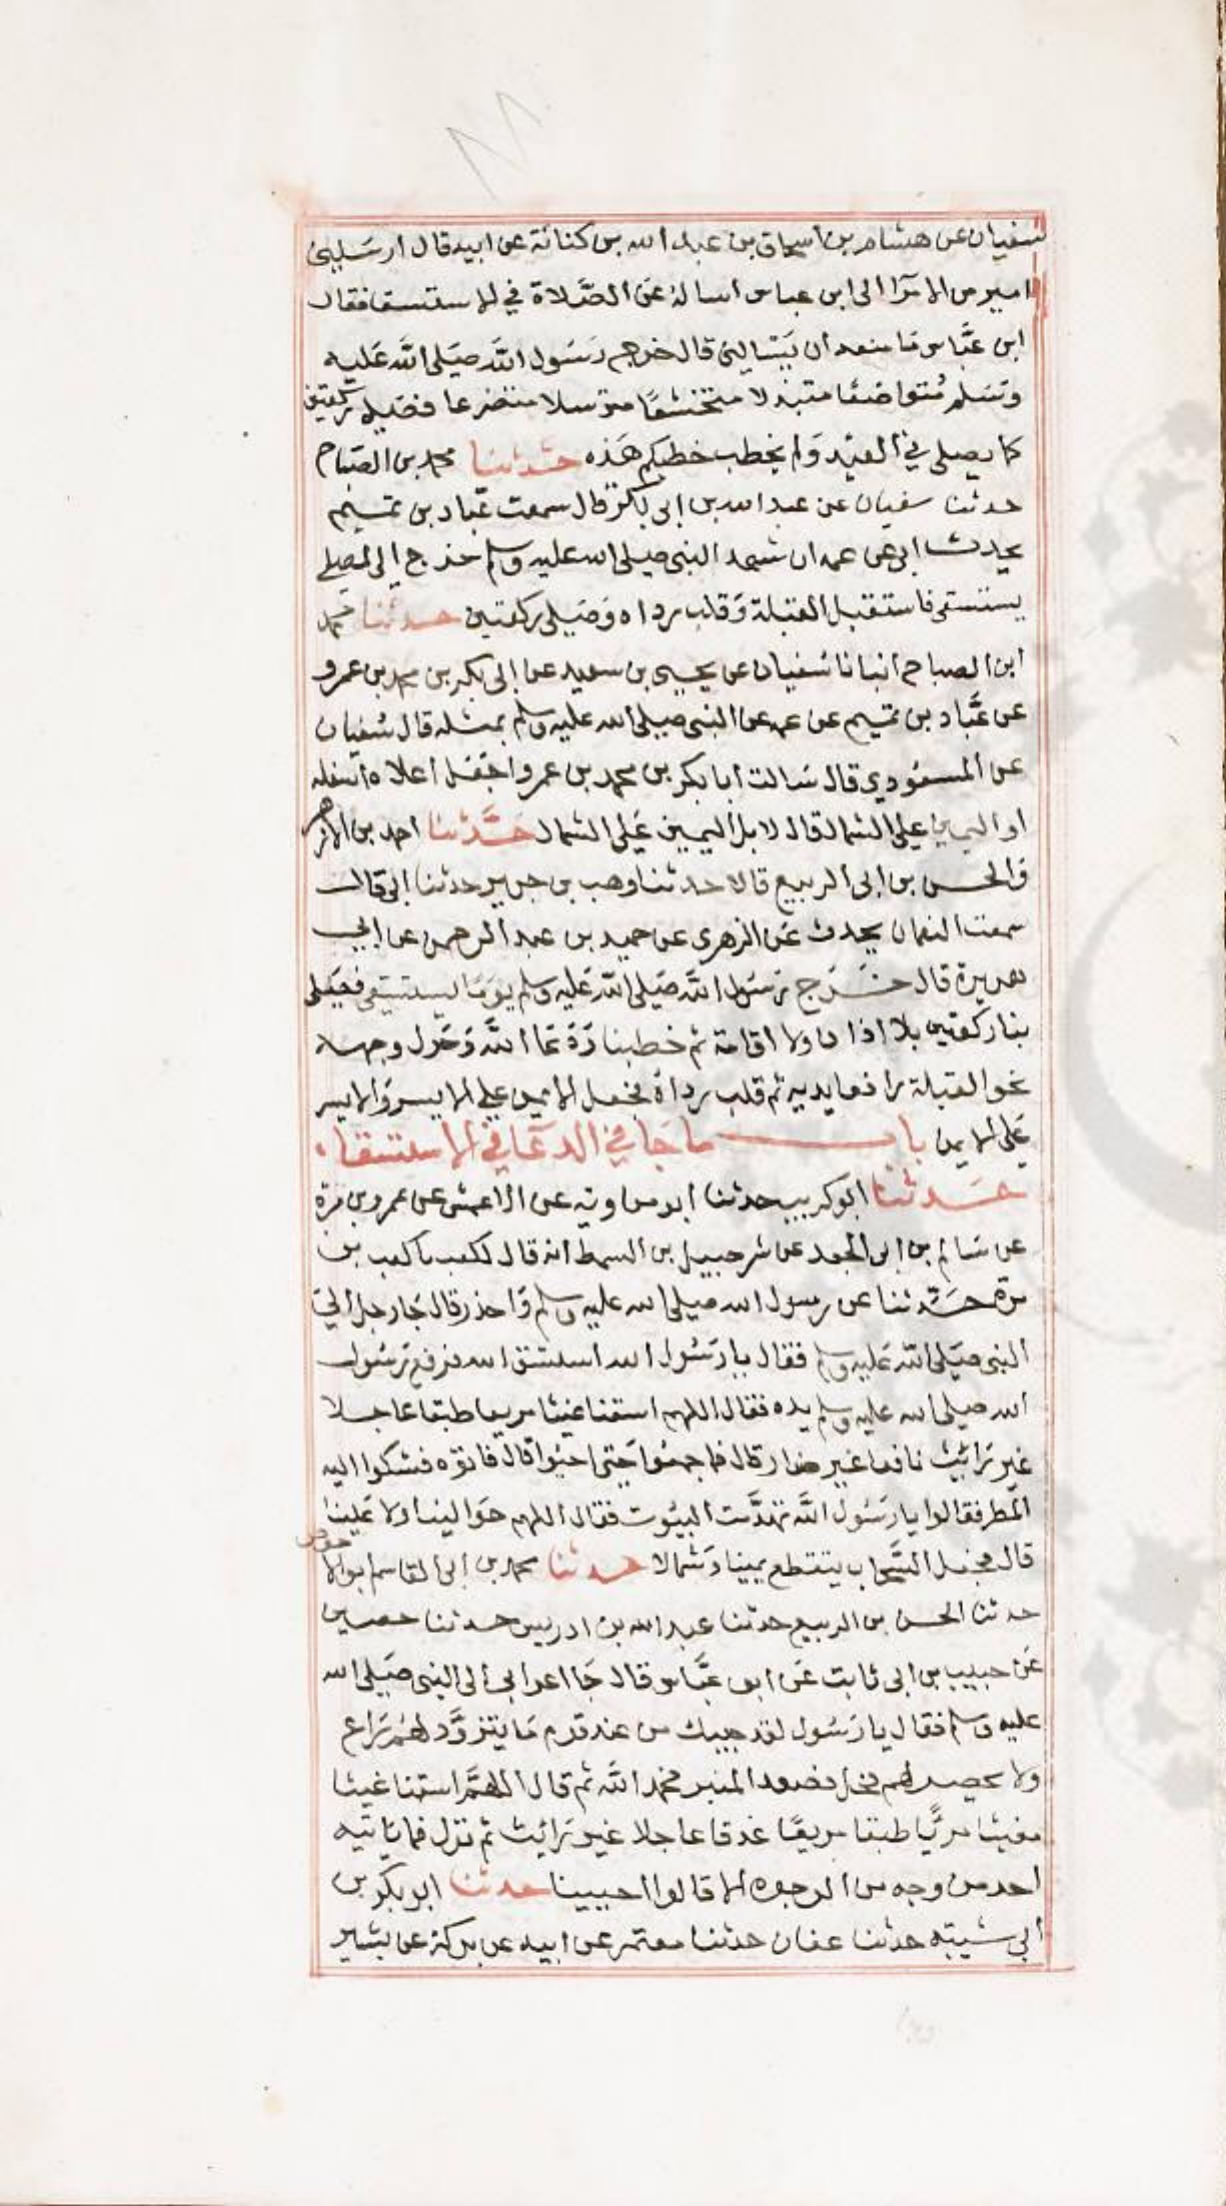 سفيان عن هشام بن اسحاق بن عبد الله بن كنانة عن ابيه قال ارسلني
امير من الامرا الى ابن عباس اساله عن الصلاة في الاستسقا فقال
ابن عبَّاس ما منعه ان يَسالني قال خرج رَسُول اللَّه صَلى اللَّه عَليه
وسَلم مُتواضعًا متبذلا متخشعًا مترسلا متضرعا فصَلى ركعتين
كما يصلي في العيد وَلم يخطب خطبتكم هَذه حَدثنا محمد بن الصَباح
حدثنا سفيان عن عبد الله بن ابى بَكر قال سمعت عَباد بن تميم
يحدث ابى عن عمه ان شهد النبى صلى الله عليه وسلم خرج الى المصلى
يستسقى فاستقبل القبلة وَقلب رداه وَصَلى ركعتين حدثنا محمد
ابن الصباح انبانا سُفيان عن يحيى بن سعيد عن ابى بكر بن محمد بن عمرو
عن عَبَّاد بن تميم عن عمه عن النبى صلى الله عليه وسلم بمثله قال سُفيان
عن المسعُودي قال سَالت ابا بكر بن محمد بن عمرو اجَعَل اعلاه اسفله
او اليمين على الشمال قال لا بل اليمين عَلى الشمال حَدَّثنا احمد بن الازهر
وَالحسن بن ابى الربيع قالا حدثنا وهب بن جرير حدثنا ابى قال
سمعت النعمان يحدث عَن الزهرى عن حميد بن عبد الرحمن عن ابي
هريرة قال خَرَج رَسُول اللَّه صَلى اللَّه عَليه وسلم يَومًا يستسقى فصَلى
بنا ركعتين بلا اذان ولا اقامة ثم خطبنا وَدَعَا اللَّه وَحَول وجهه
نحو القبلة رافعا يديه ثم قلب رداه فجعل الايمن على الايسر وَالايسر
عَلى الايمن باب ما جَا في الدعَا في الاستسقا
حَدثنا ابو كريب حدثنا ابو معاوية عن الاعمش عن عمرو بن مرة
عن سَالم بن ابى الجعد عن شرحبيل بن السمط انه قال لكعب يا كعب بن
مرة حَدّثنا عن رسول الله صلى الله عليه وسلم وَاحذر قال جَا رجل الى
النبى صَلى اللَّه عَليه وسلم فقال يا رَسُول الله استسق الله فرفع رَسُول
الله صلى الله عليه وسلم يده فقال اللهم اسقنا غيثا مريعا طبقا عاجلا
غير رَائيث نافعا غير ضار قال فما جمعُوا حَتى احيُوا قال فاتوه فشكوا اليه
المطر فقالوا يا رَسُول اللَّه تهدَّمت البيُوت فقال اللهم حَوالينا ولا عَلينا
قال فجعل السَّحاب يتقطع يمينا وَشمالا حدثنا محمد بن ابى القاسم ابو الاحوص
حدثنا الحسن بن الربيع حدثنا عبد الله بن ادريس حدثنا حصين
عَن حبيب بن ابى ثابت عَن ابن عَبَّاس قال جَا اعرابى الى النبى صَلى الله
عليه وسلم فقال يا رَسُول لقد جيتك من عند قوم مَا يتزوَّد لهُم رَاع
ولا يخصر لهم فحل فصعد المنبر فحمد اللَّه ثم قال اللهمَّ اسقنا غيثا
مغيثا مريًّا طبقا مريعًا غدقا عاجلا غير رَائيث ثم نزل فما ياتيه
احد من وجه من الوجوه الا قالوا احيينا حدثنا ابو بكر بن
ابي شيبة حدثنا عفان حدثنا معتمر عن ابيه عن بركة عن بشير